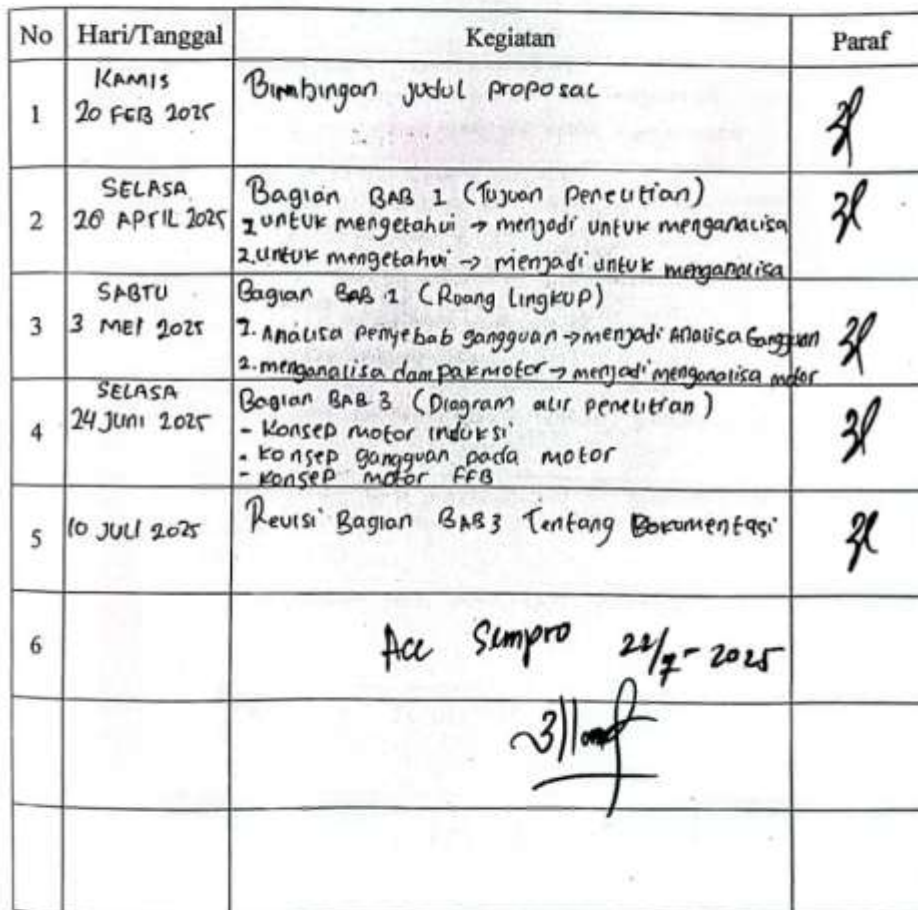 No Hari/Tanggal Kegiatan Paraf
1 KAMIS
20 FEB 2025
Bimbingan judul proposal
2 SELASA
26 APRIL 2025
Bagian BAB 1 (Tujuan Penelitian)
1 untuk mengetahui → menjadi untuk menganalisa
2. untuk mengetahui → menjadi untuk menganalisa
3 SABTU
3 MEI 2025
Bagian BAB 1 (Ruang Lingkup)
1. Analisa penyebab gangguan → menjadi Analisa Gangguan
2. menganalisa dampak motor → menjadi menganalisa motor
4 SELASA
24 JUNI 2025
Bagian BAB 3 (Diagram alir penelitian)
- Konsep motor induksi
- Konsep gangguan pada motor
- Konsep motor FFB
5 10 JULI 2025
Revisi Bagian BAB 3 Tentang Dokumentasi
6
Acc Sempro /7-2025